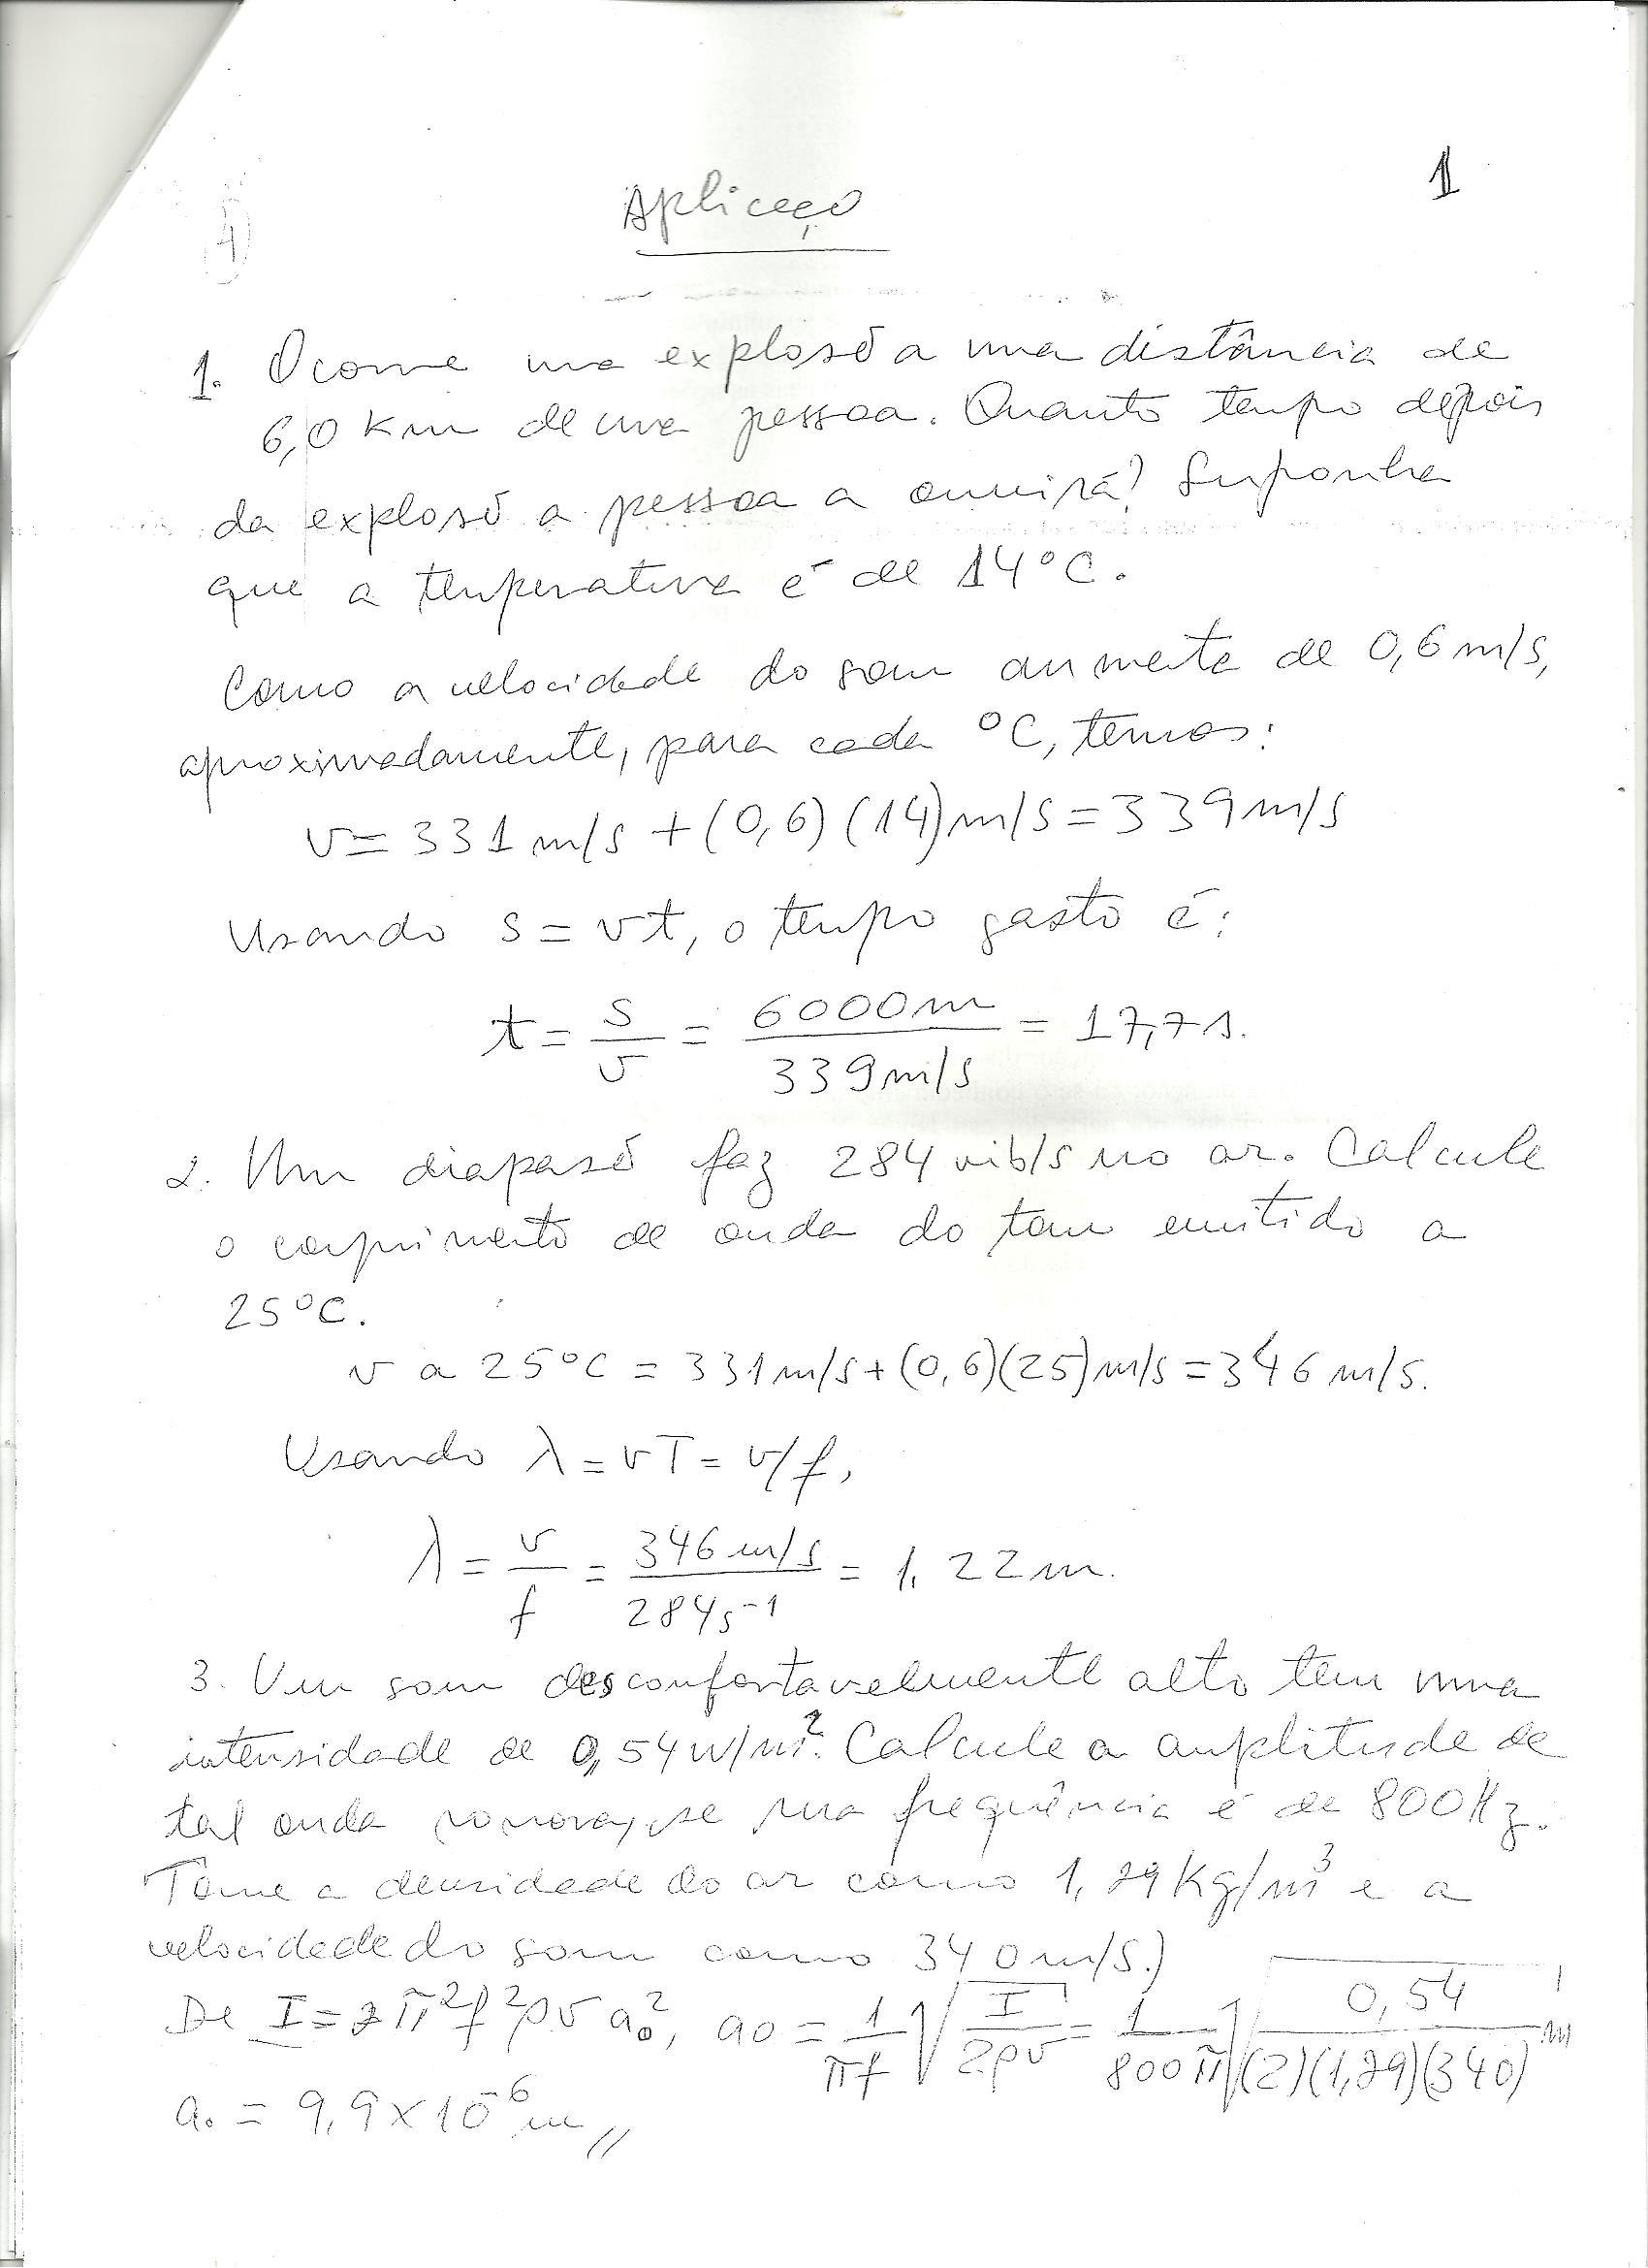 1
Aplicação
1. Ocorre uma explosão a uma distância de
6,0 Km de uma pessoa. Quanto tempo depois
da explosão a pessoa a ouvirá? Suponha
que a temperatura é de 14°C.
Como a velocidade do som aumenta de 0,6 m/s,
aproximadamente, para cada °C, temos:
v = 331 m/s + (0,6) (14) m/s = 339 m/s
Usando s = vt, o tempo gasto é:
t = s/v = 6000m/339m/s = 17,7 s.
2. Um diapasão faz 284 vib/s no ar. Calcule
o comprimento de onda do tom emitido a
25°C.
v a 25°C = 331 m/s + (0,6)(25) m/s = 346 m/s.
Usando λ = vT = v/f,
λ = v/f = 346 m/s/284 s⁻¹ = 1,22 m.
3. Um som desconfortavelmente alto tem uma
intensidade de 0,54 W/m². Calcule a amplitude de
tal onda sonora, se sua frequência é de 800 Hz.
Tome a densidade do ar como 1,29 Kg/m³ e a
velocidade do som como 340 m/s.)
De I = 2π²f²ρv a₀², a₀ = 1/πf √(I/2ρv) = 1/800π √(0,54/(2)(1,29)(340)) m
a₀ = 9,9 × 10⁻⁶ m //